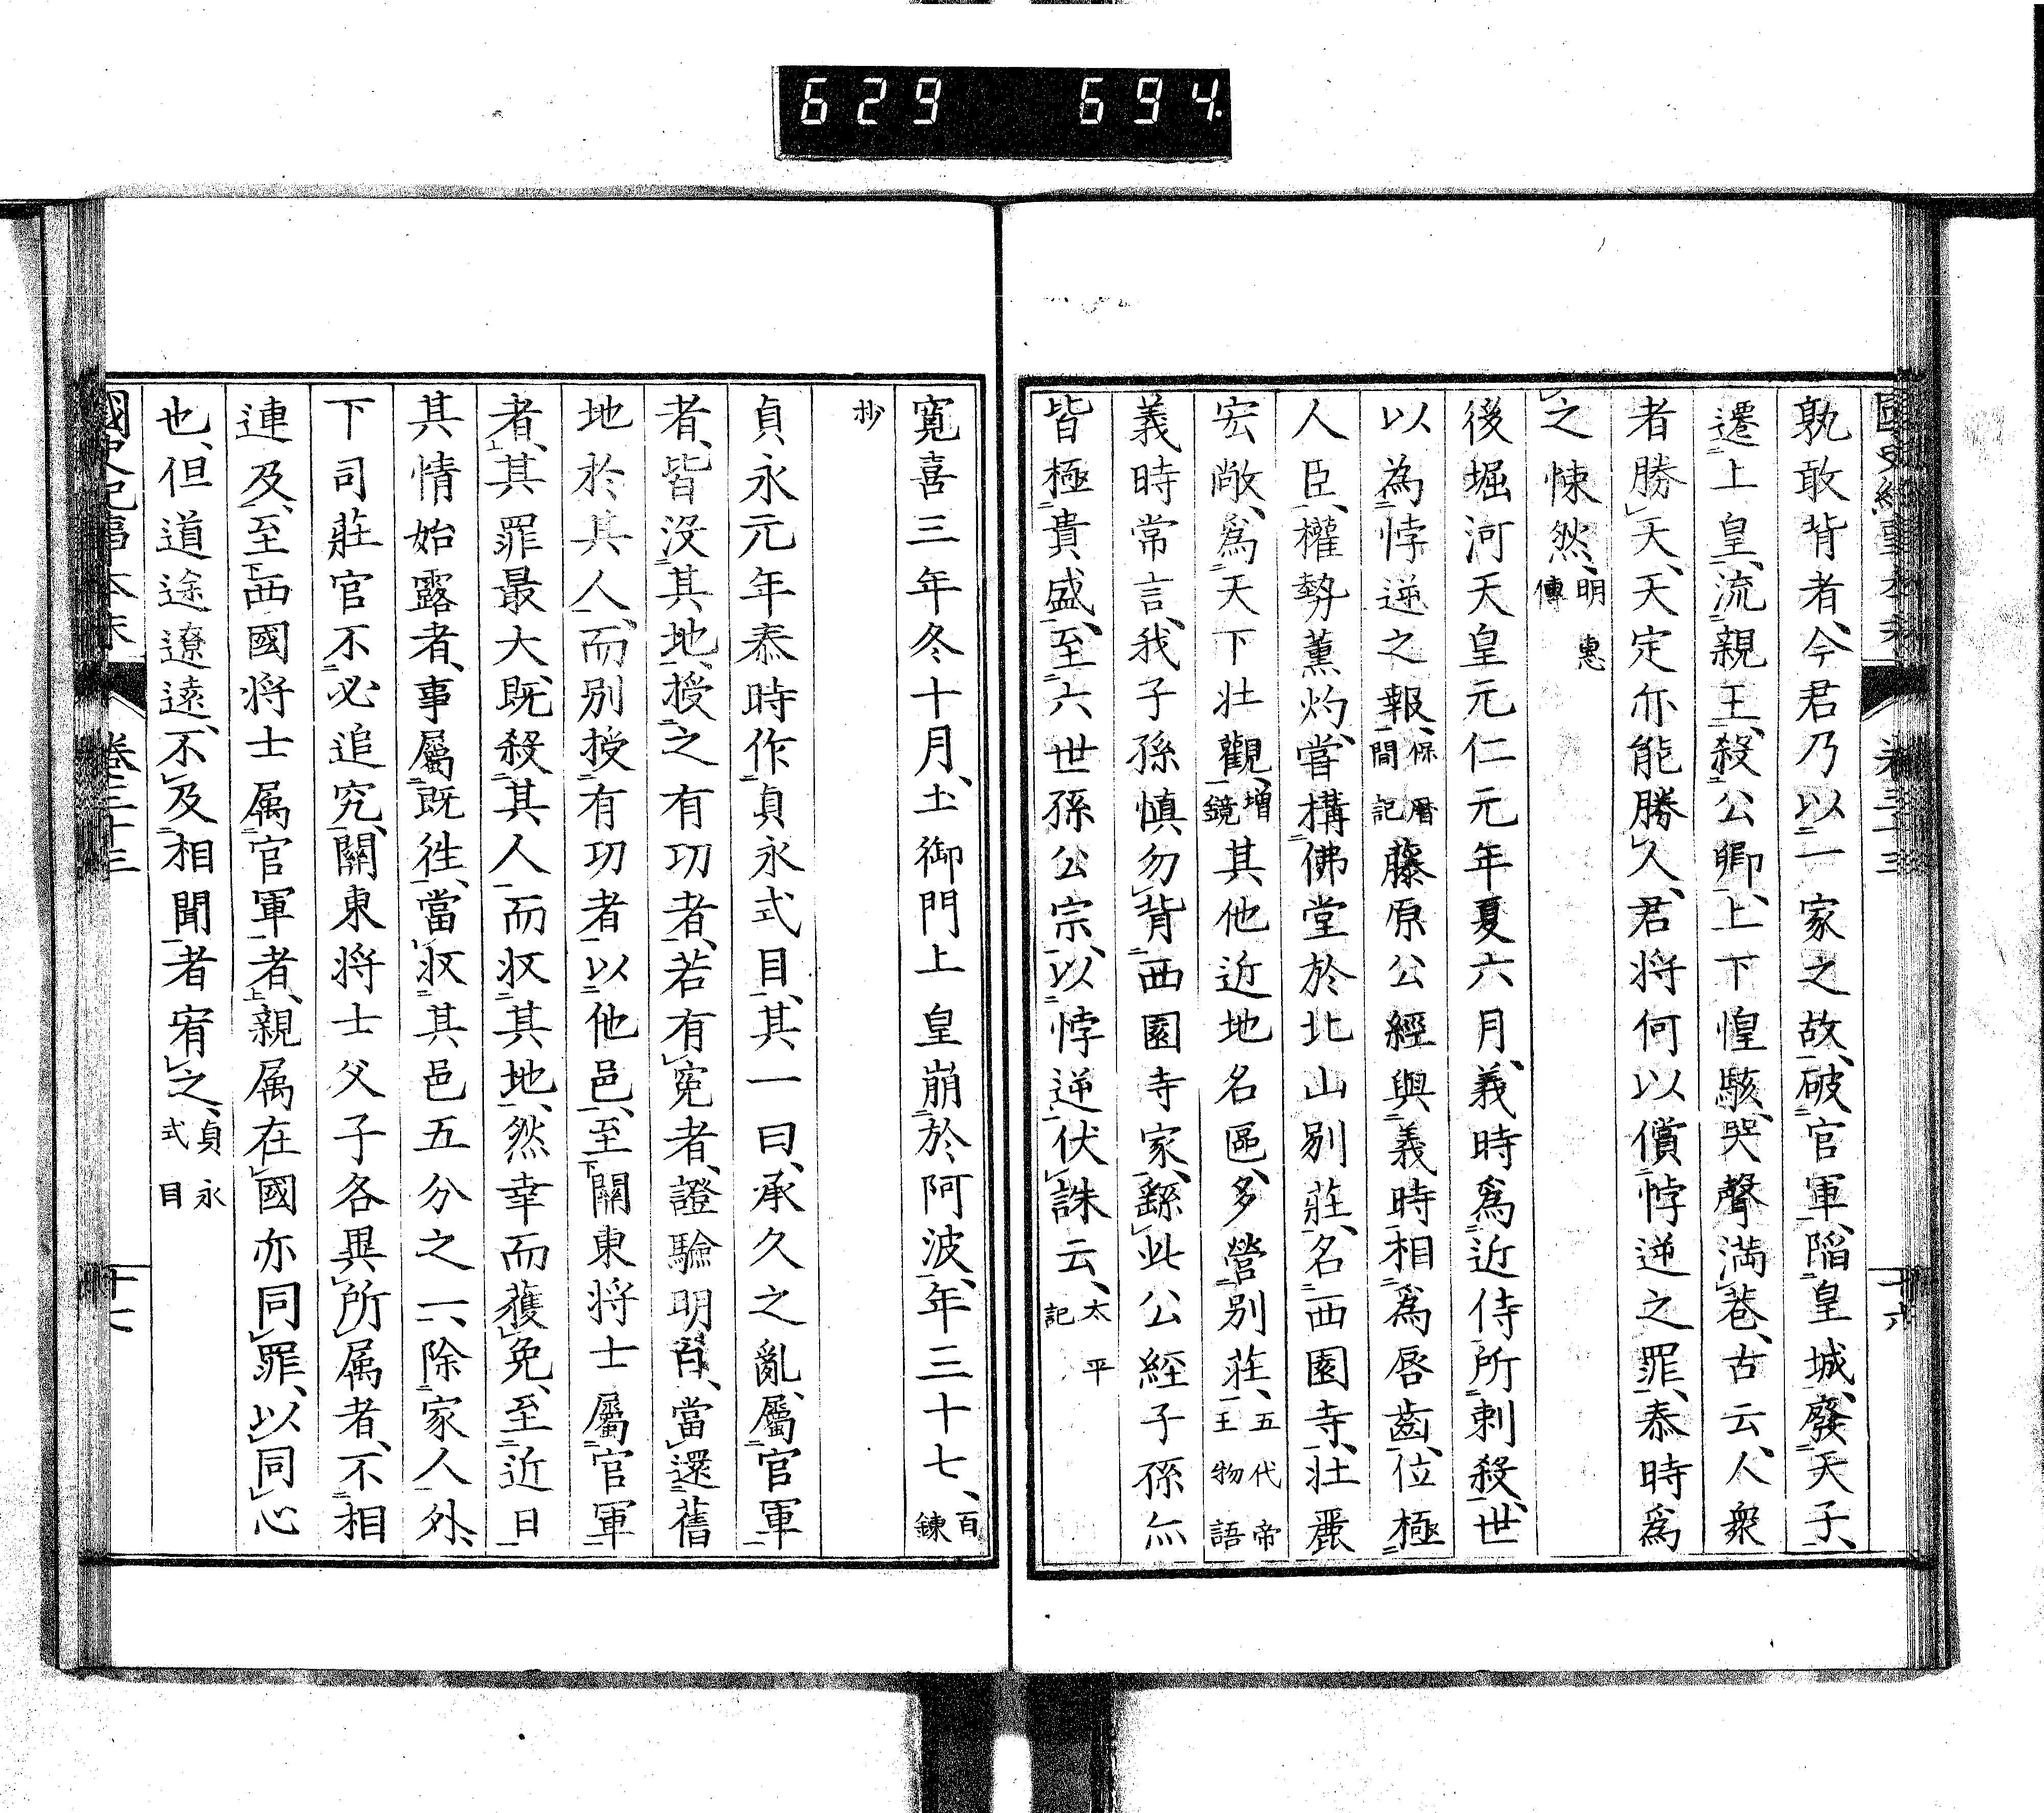 629 694.
孰敢背者、今君乃以一家之故、破官軍、陷皇城、廢天子、
遷上皇、流親王、殺公卿、上下惶駭、哭聲滿巷、古云、人衆
者勝天、天定亦能勝人、君將何以償悖逆之罪、泰時爲
之悚然、明惠傳
後堀河天皇元仁元年夏六月、義時爲近侍所刺殺、世
以為悖逆之報、保曆間記藤原公經與義時相爲唇齒、位極
人臣、權勢薰灼、嘗構佛堂於北山別莊、名西園寺、壯麗
宏敞、爲天下壯觀、增鏡其他近地名區、多營別莊、五代帝王物語
義時常言、我子孫慎勿背西園寺家、繇此公經子孫亦
皆極貴盛、至六世孫公宗、以悖逆伏誅云、太平記
寬喜三年冬十月、土御門上皇崩於阿波、年三十七、百鍊
抄
貞永元年泰時作貞永式目、其一曰、承久之亂、屬官軍
者、皆沒其地、授之有功者、若有寃者、證驗明白、當還舊
地於其人、而別授有功者以他邑、至關東將士屬官軍
者、其罪最大、既殺其人而收其地、然幸而獲免、至近日
其情始露者、事屬既徃、當收其邑五分之一、除家人外、
下司莊官不必追究、關東將士父子各異所属者、不相
連及、至西國將士属官軍者、親属在國亦同罪、以同心
也、但道途遼遠、不及相聞者宥之、貞永式目
國史紀事本末 卷三十三 十七